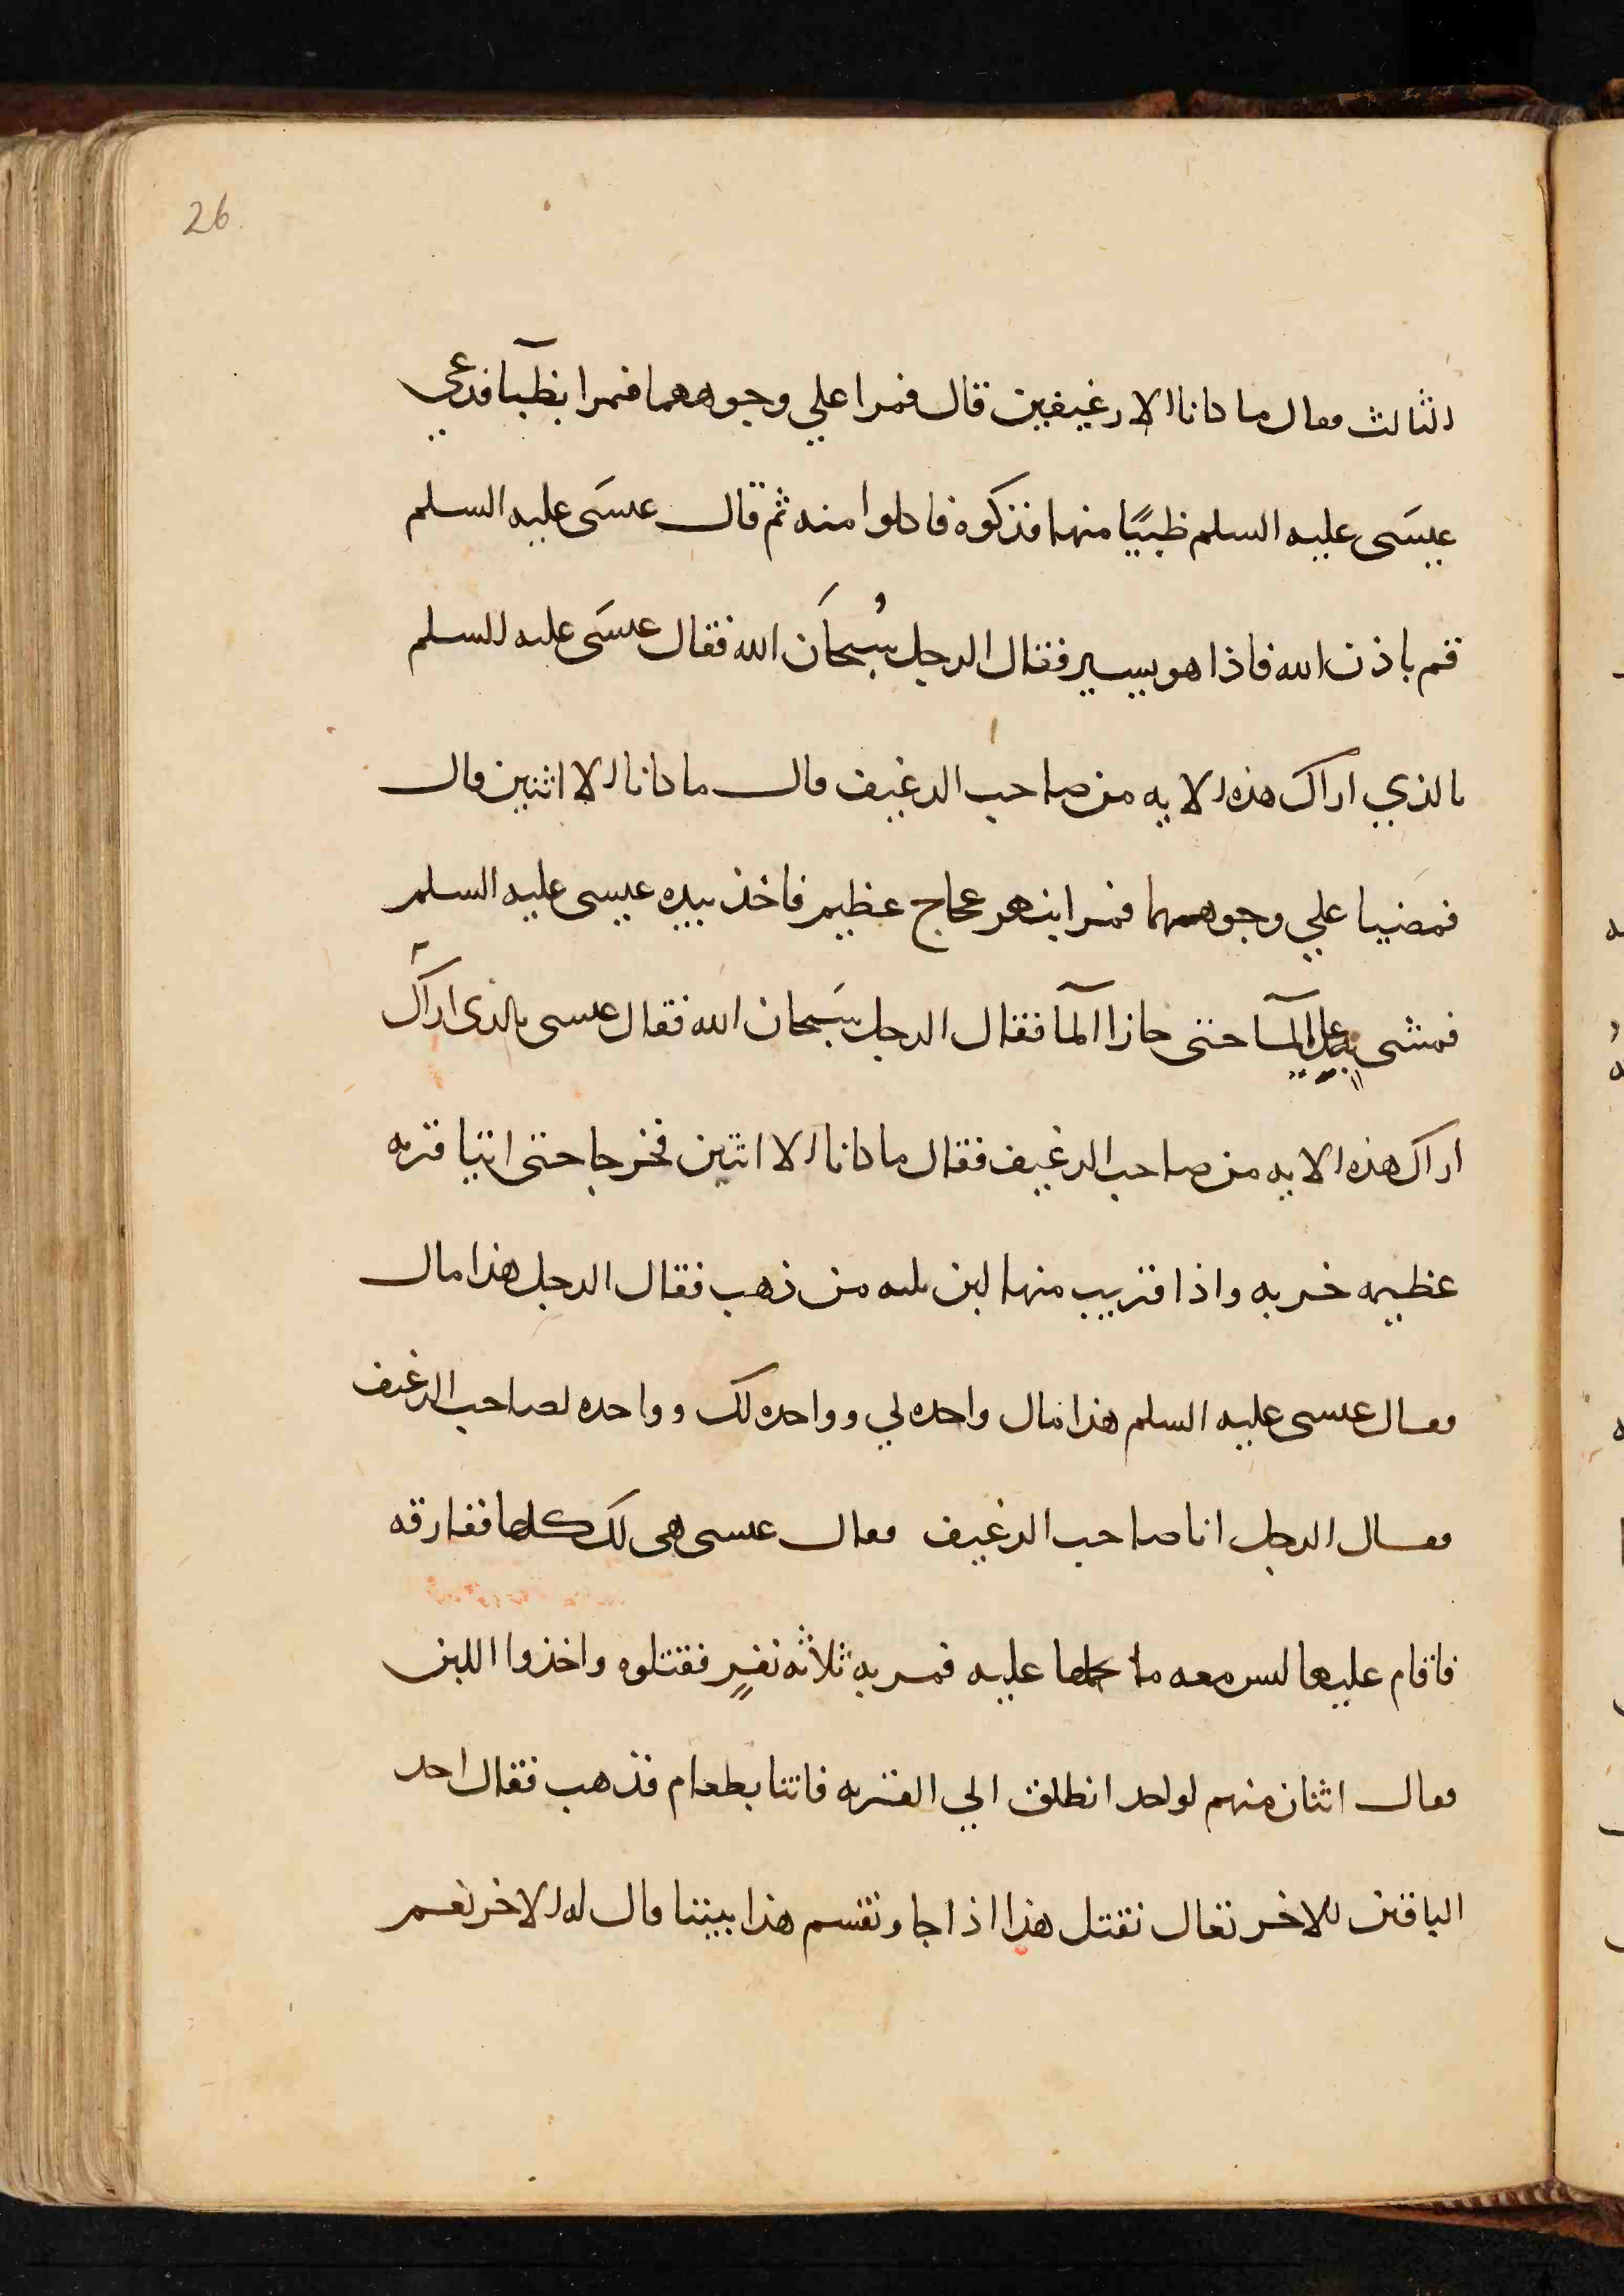 26
الثالث فقال ما كانا الا رغيفين قال فمرا علي وجوههما فمرا بظبآ فدعي
عيسَى عليه السلم ظبيًا منها فذكوه فاكلوا منه ثم قال عيسَى عليه السلم
قم باذن الله فاذا هو يسير فقال الرجل سُبحَان الله فقال عيسَى عليه السلم
بالذي اراك هذه الايه من صاحب الرغيف قال ما كانا الا اثنين قال
فمضيا علي وجوههما فمرا بنهر عجاج عظيم فاخذ بيده عيسى عليه السلم
فمشى به علي المآ حتى جازا المآ فقال الرجل سَبحان الله فقال عيسى بالذى اراك
اراك هذه الايه من صاحب الرغيف فقال ما كانا الا اثنين فخرجا حتى اتيا قريه
عظيمه خربه واذا قريب منها لبن ثلثه من ذهب فقال الرجل هذا مال
فقال عيسى عليه السلم هذا مال واحده لي وواحده لك وواحده لصاحب الرغيف
فقال الرجل انا صاحب الرغيف فقال عيسى هى لك كلها ففارقه
فاقام عليها ليس معه ما يحملها عليه فمر به ثلاثه نفرٍ فقتلوه واخذوا اللبن
فقال اثنان منهم لواحد انطلق الي القريه فاتنا بطعام فذهب فقال احد
الباقين للاخر تعال نقتل هذا اذا جا ونقسم هذا بيننا قال له الاخر نعم